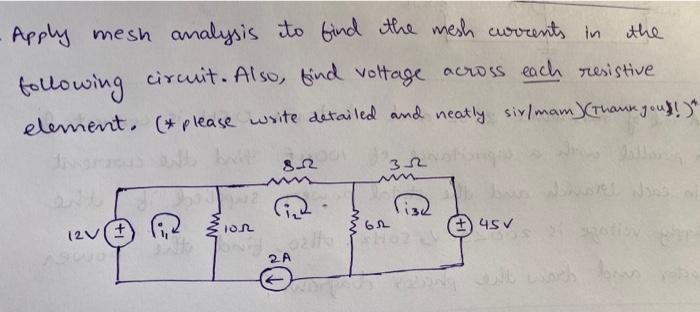 Apply mesh analysis to find the mesh currents in the
following circuit. Also, find voltage across each resistive
element. (* please write detailed and neatly sir/mam)(Thank you!!)*
8Ω 3Ω
12V ± i1 10Ω i2 6Ω i3 ± 45V
2A